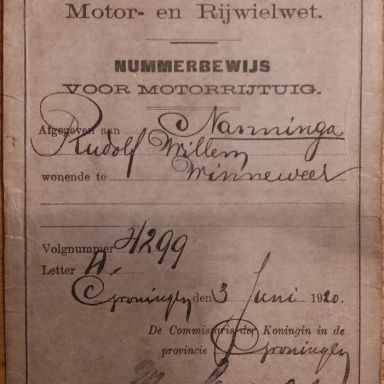 Motor- en Rijwielwet.
NUMMERBEWIJS
VOOR MOTORRIJTUIG.
Afgegeven aan Nanninga
Rudolf Willem
wonende te Winneweer
Volgnummer 4299
Letter A.
Groningen den 3 Juni 1920.
De Commissaris der Koningin in de
provincie Groningen